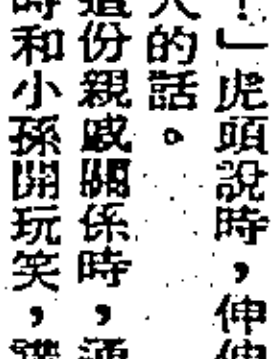 ！」虎頭說時，伸
的話。
份親戚關係時，
時和小孫開玩笑，